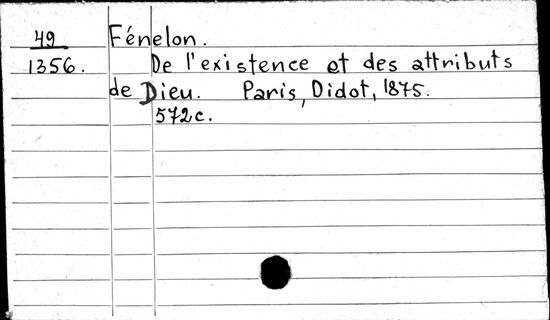 49 Fénelon.
1356. De l'existence et des attributs
de Dieu. Paris, Didot, 1875.
572c.